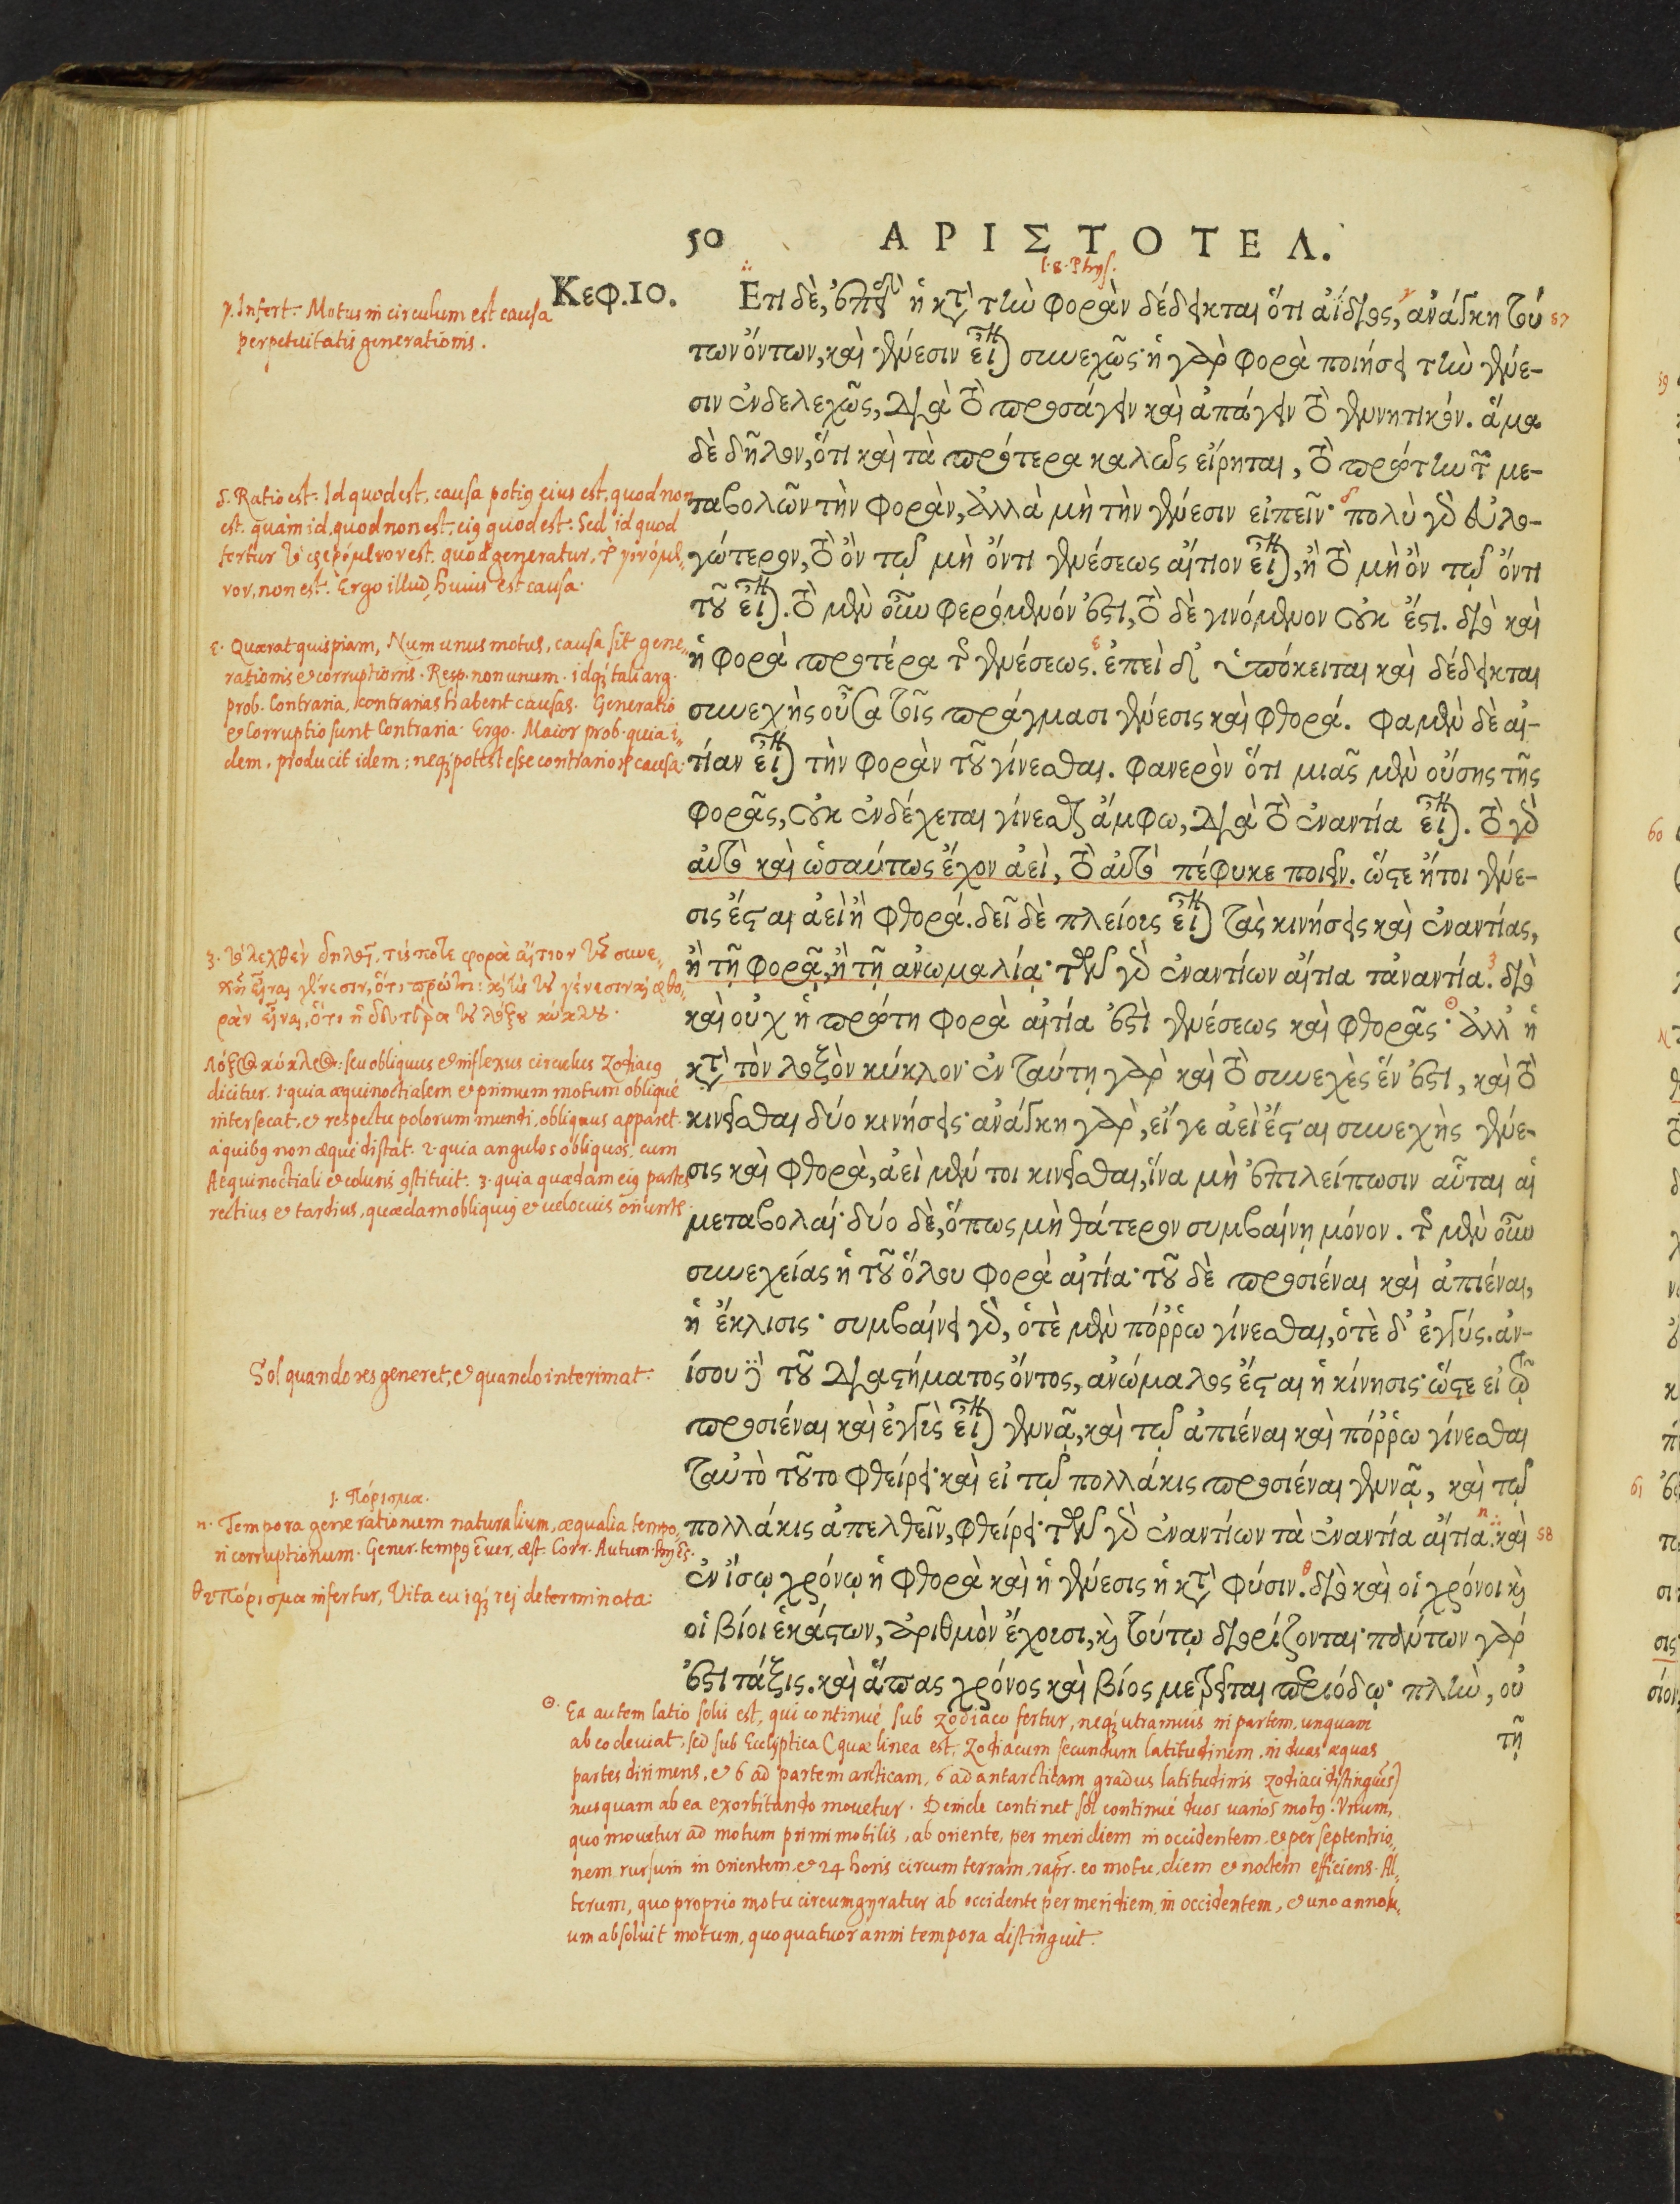 50 ΑΡΙΣΤΟΤΕΛ.
l. 8. Phys.
Κεφ.10.
Ετι δὲ, ἐπεὶ ἡ κτ̀ τὴν φορὰν δέδεικται ὅτι ἀΐδιος, ἀνάγκη τού
των ὄντων, καὶ γένεσιν εἶναι συνεχῶς· ἡ γὰρ φορὰ ποιήσει τὴν γένε-
σιν ἐνδελεχῶς, διὰ τὸ προσάγειν καὶ ἀπάγειν τὸ γεννητικόν. ἅμα
δὲ δῆλον, ὅτι καὶ τὰ πρότερα καλῶς εἴρηται, τὸ πρώτην τῶν με-
ταβολῶν τὴν φορὰν, ἀλλὰ μὴ τὴν γένεσιν εἰπεῖν· πολὺ γὸ εὐλο-
γώτερον, τὸ ὂν τῷ μὴ ὄντι γενέσεως αἴτιον εἶναι, ἢ τὸ μὴ ὂν τῷ ὄντι
τοῦ εἶναι. τὸ μὲν οὖν φερόμενόν ἐστι, τὸ δὲ γινόμενον οὐκ ἔστι. διὸ καὶ
ἡ φορὰ προτέρα τῆς γενέσεως. ἐπεὶ δ' ὑπόκειται καὶ δέδεικται
συνεχὴς οὖσα τοῖς πράγμασι γένεσις καὶ φθορά. φαμὲν δὲ αἰ-
τίαν εἶναι τὴν φορὰν τοῦ γίνεσθαι. φανερὸν ὅτι μιᾶς μὲν οὔσης τῆς
φορᾶς, οὐκ ἐνδέχεται γίνεσθαι ἄμφω, διὰ τὸ ἐναντία εἶναι. τὸ γὸ
αὐτὸ καὶ ὡσαύτως ἔχον ἀεὶ, τὸ αὐτὸ πέφυκε ποιεῖν. ὥστε ἤτοι γένε-
σις ἔσται ἀεὶ ἢ φθορά. δεῖ δὲ πλείους εἶναι τὰς κινήσεις καὶ ἐναντίας,
ἢ τῇ φορᾷ, ἢ τῇ ἀνωμαλίᾳ· τῶν γὸ ἐναντίων αἴτια τἀναντία. διὸ
καὶ οὐχ ἡ πρώτη φορὰ αἰτία ἐστὶ γενέσεως καὶ φθορᾶς· ἀλλ' ἡ
κτ̀ τὸν λοξὸν κύκλον· ἐν ταύτῃ γὰρ καὶ τὸ συνεχὲς ἕν ἐστι, καὶ τὸ
κινεῖσθαι δύο κινήσεις· ἀνάγκη γὰρ, εἴ γε ἀεὶ ἔσται συνεχὴς γένε-
σις καὶ φθορὰ, ἀεὶ μέν τοι κινεῖσθαι, ἵνα μὴ ἐπιλείπωσιν αὗται αἱ
μεταβολαί· δύο δὲ, ὅπως μὴ θάτερον συμβαίνῃ μόνον. τῆς μὲν οὖν
συνεχείας ἡ τοῦ ὅλου φορὰ αἰτία· τοῦ δὲ προσιέναι καὶ ἀπιέναι,
ἡ ἔκλισις· συμβαίνει γὸ, ὁτὲ μὲν πόῤῥω γίνεσθαι, ὁτὲ δ' ἐγγύς. ἀν-
ίσου δὲ τοῦ διαστήματος ὄντος, ἀνώμαλος ἔσται ἡ κίνησις· ὥστε εἰ τῷ
προσιέναι καὶ ἐγγὺς εἶναι γεννᾷ, καὶ τῷ ἀπιέναι καὶ πόῤῥω γίνεσθαι
ταὐτὸ τοῦτο φθείρει· καὶ εἰ τῷ πολλάκις προσιέναι γεννᾷ, καὶ τῷ
πολλάκις ἀπελθεῖν, φθείρει· τῶν γὸ ἐναντίων τὰ ἐναντία αἴτια. καὶ
ἐν ἴσῳ χρόνῳ ἡ φθορὰ καὶ ἡ γένεσις ἡ κτ̀ φύσιν. διὸ καὶ οἱ χρόνοι κὶ
οἱ βίοι ἑκάστων, ἀριθμὸν ἔχουσι, κὶ τούτῳ διορίζονται· πάντων γάρ
ἐστι τάξις. καὶ ἅπας χρόνος καὶ βίος μετρεῖται περιόδῳ· πλὴν, οὐ
τῇ
57
58
γ. Infert. Motus in circulum est causa
perpetuitatis generationis.
δ. Ratio est: Id quod est, causa potius eius est, quod non
est. quàm id, quod non est, eius quod est: Sed id quod
fertur τὸ φερόμενον est. quod generatur, τὸ γινόμε-
νον, non est. Ergo illud huius est causa.
ε. Quærat quispiam, Num unus motus, causa sit gene-
rationis et corruptionis. Resp. non unum. idq; tali arg.
prob. Contraria, contrarias habent causas. Generatio
et Corruptio sunt Contraria. Ergo. Maior prob. quia i-
dem, producit idem; neq; potest esse contrariorum causa.
ζ. τὸ λεχθὲν δηλοῖ, τίς ποτε φορὰ αἴτιον τοῦ συνε-
χῆ εἶναι γένεσιν, ὅτι πρώτη: καὶ τίς τοῦ γένεσιν καὶ φθο-
ρὰν εἶναι, ὅτι ἡ δευτέρα τοῦ λοξοῦ κύκλου.
Λόξος κύκλος: seu obliquus et inflexus circulus Zodiacus
dicitur. 1. quia æquinoctialem et primum motum obliquè
intersecat, et respectu polorum mundi, obliquus apparet.
à quibus non æquè distat. 2. quia angulos obliquos, cum
Aequinoctiali et coluris constituit. 3. quia quædam eius partes
rectius et tardius, quædam obliquius et velocius oriuntur.
Sol quando res generet, et quando interimat.
1. Πόρισμα.
η. Tempora generationum naturalium, æqualia tempo-
ri corruptionum. Gener. tempus Ever, æst. Corr. Autum. Hyems.
θ 2 Πόρισμα infertur, Vita cuiusq; rei determinata.
☉. Ea autem latio solis est, qui continuè sub zodiaco fertur, neq; utramuis in partem, unquam
ab eo deviat, sed sub Ecclyptica (quæ linea est, Zodiacum secundum latitudinem, in duas æquas
partes dirimens, et 6 ad partem arcticam, 6 ad antarcticam gradus latitudinis zodiaci distinguens)
nusquam ab ea exorbitando mouetur. Deinde continet sol continuè duos varios motus. Unum,
quo mouetur ad motum primi mobilis, ab oriente, per meridiem in occidentem, et per septentrio-
nem rursum in orientem, et 24 horis circum terram, rapitur. eo motu, diem et noctem efficiens. Al-
terum, quo proprio motu circumgyratur ab occidente per meridiem, in occidentem, et uno anno su-
um absoluit motum, quo quatuor anni tempora distinguit.
59
60
61